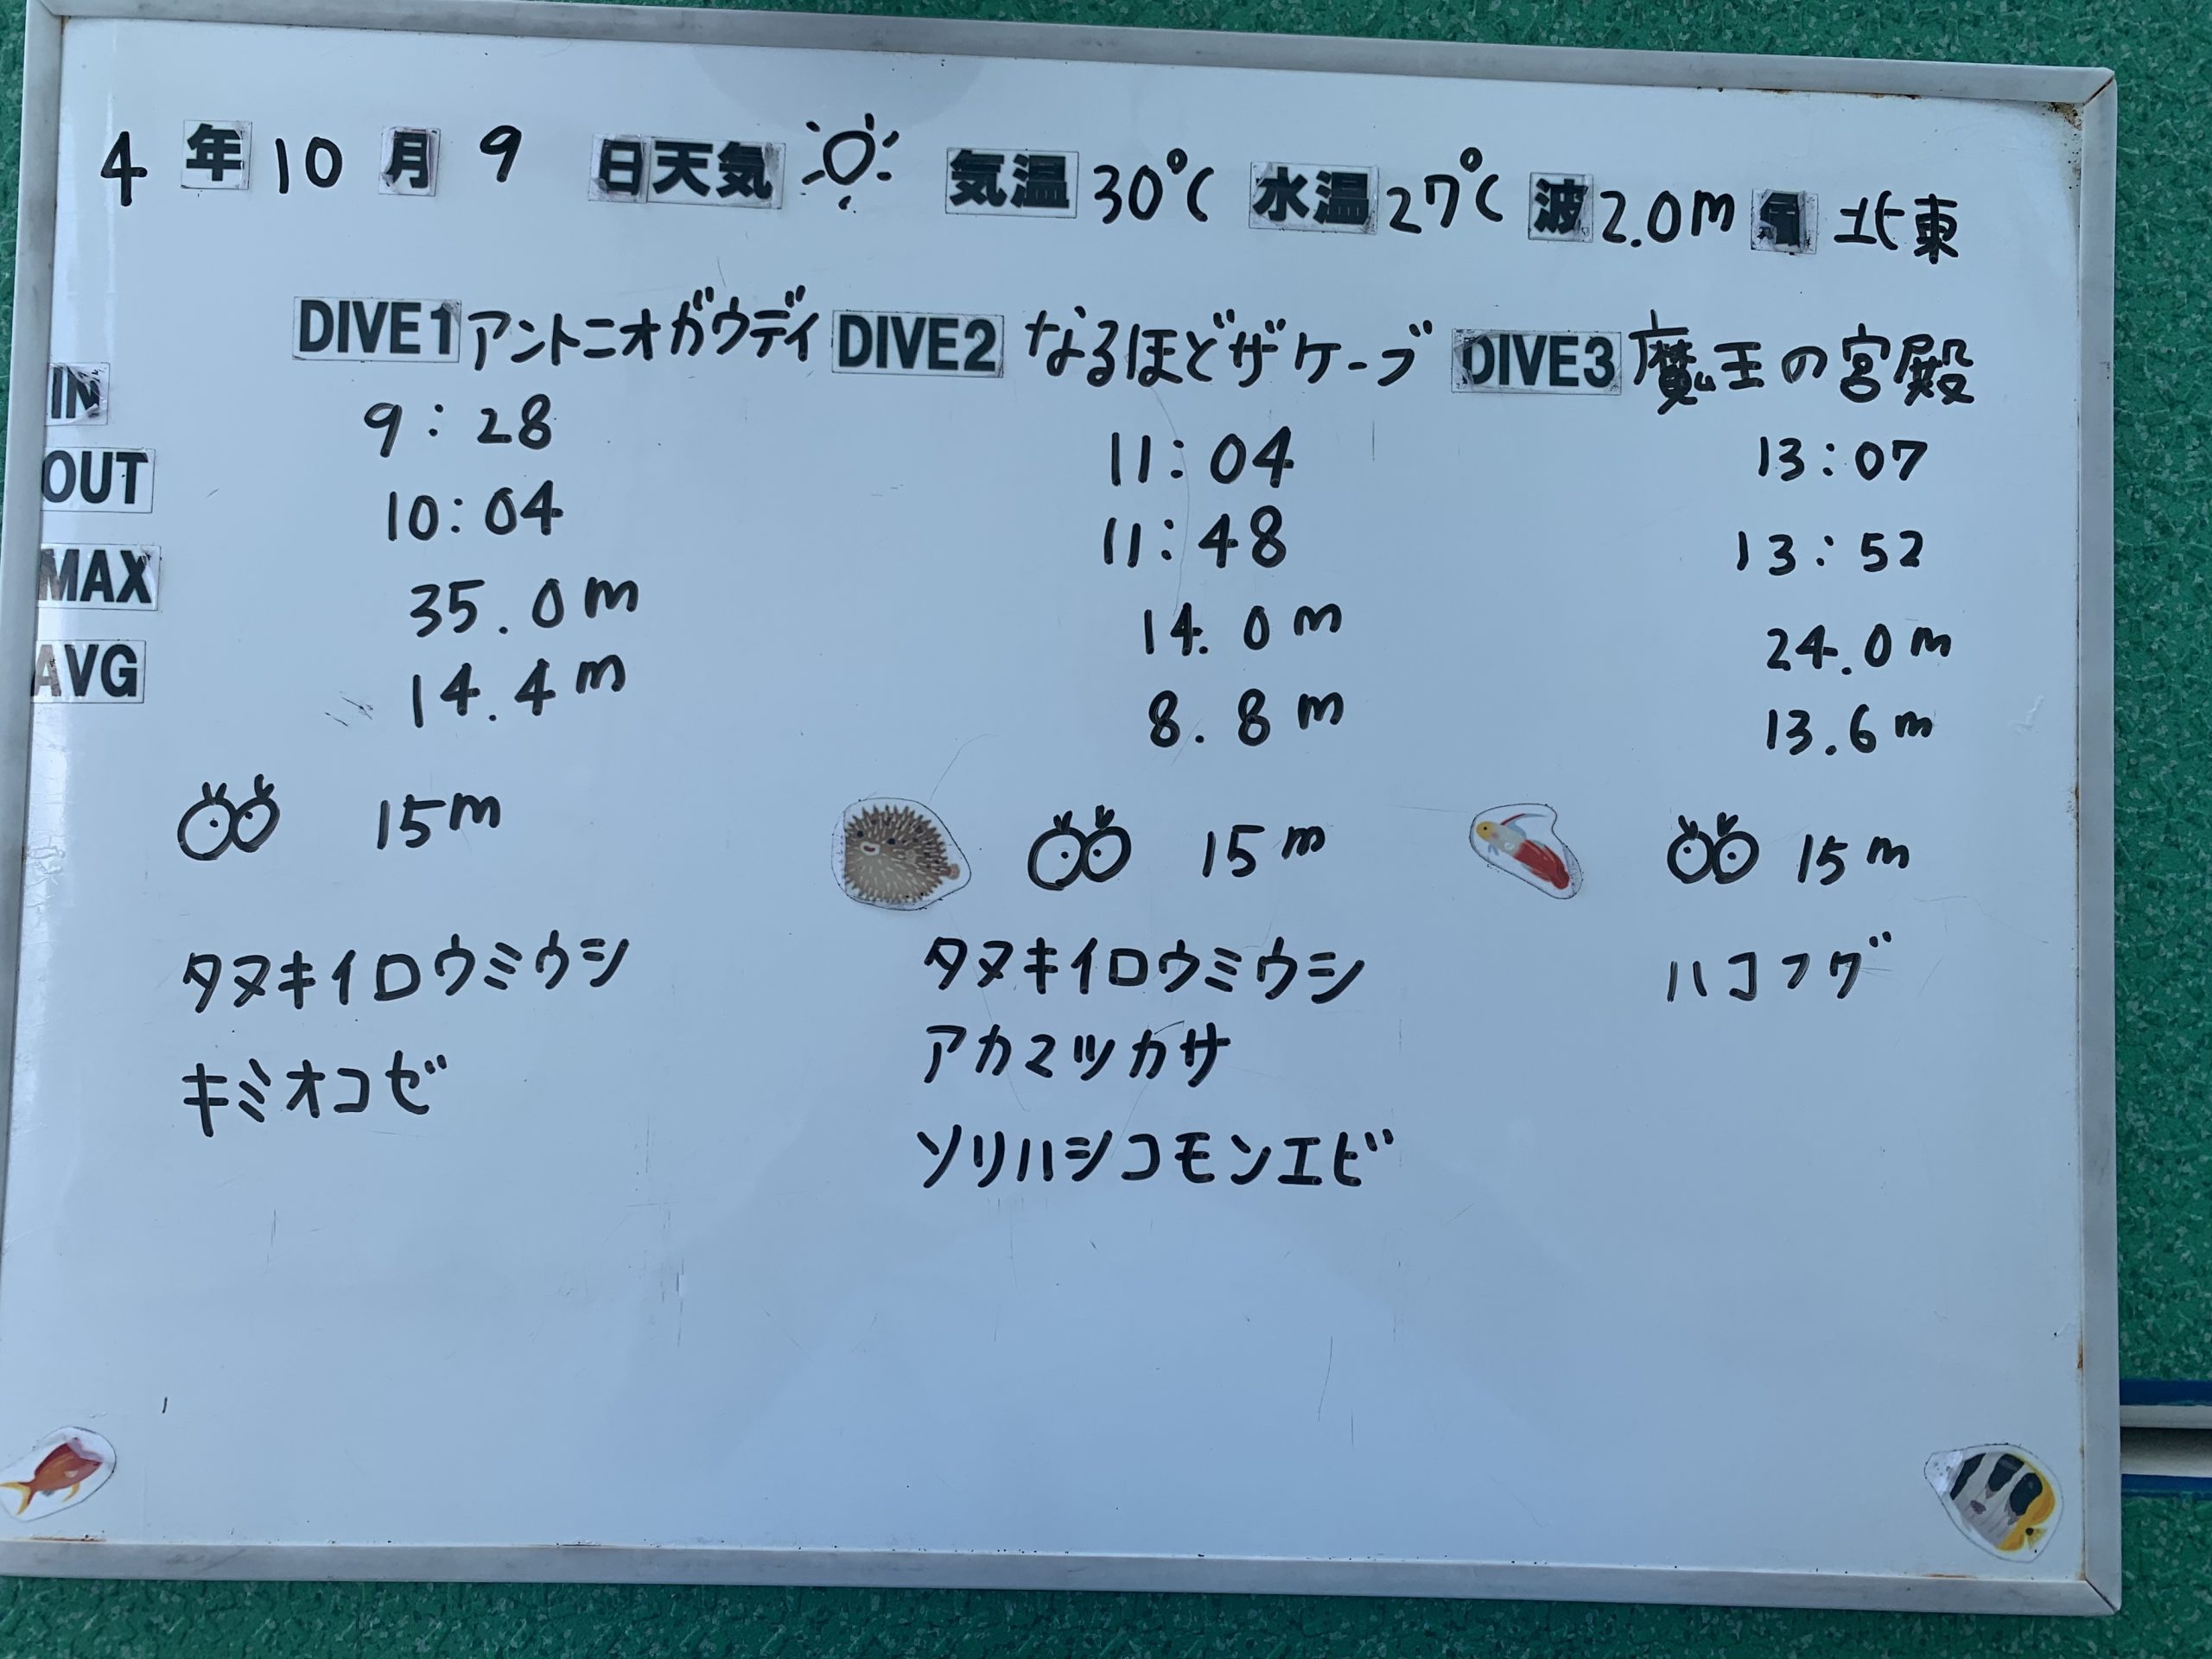 4年10月9日天気 気温30℃ 水温27℃ 波2.0m 風 北東
DIVE1 アントニオガウディ DIVE2 なるほどザケーブ DIVE3 魔王の宮殿
IN 9:28 11:04 13:07
OUT 10:04 11:48 13:52
MAX 35.0m 14.0m 24.0m
AVG 14.4m 8.8m 13.6m
15m 15m 15m
タヌキイロウミウシ タヌキイロウミウシ ハコフグ
キミオコゼ アカマツカサ
ソリハシコモンエビ